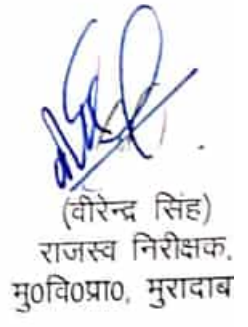 (वीरेन्द्र सिंह)
राजस्व निरीक्षक,
मु0वि0प्रा0, मुरादाब